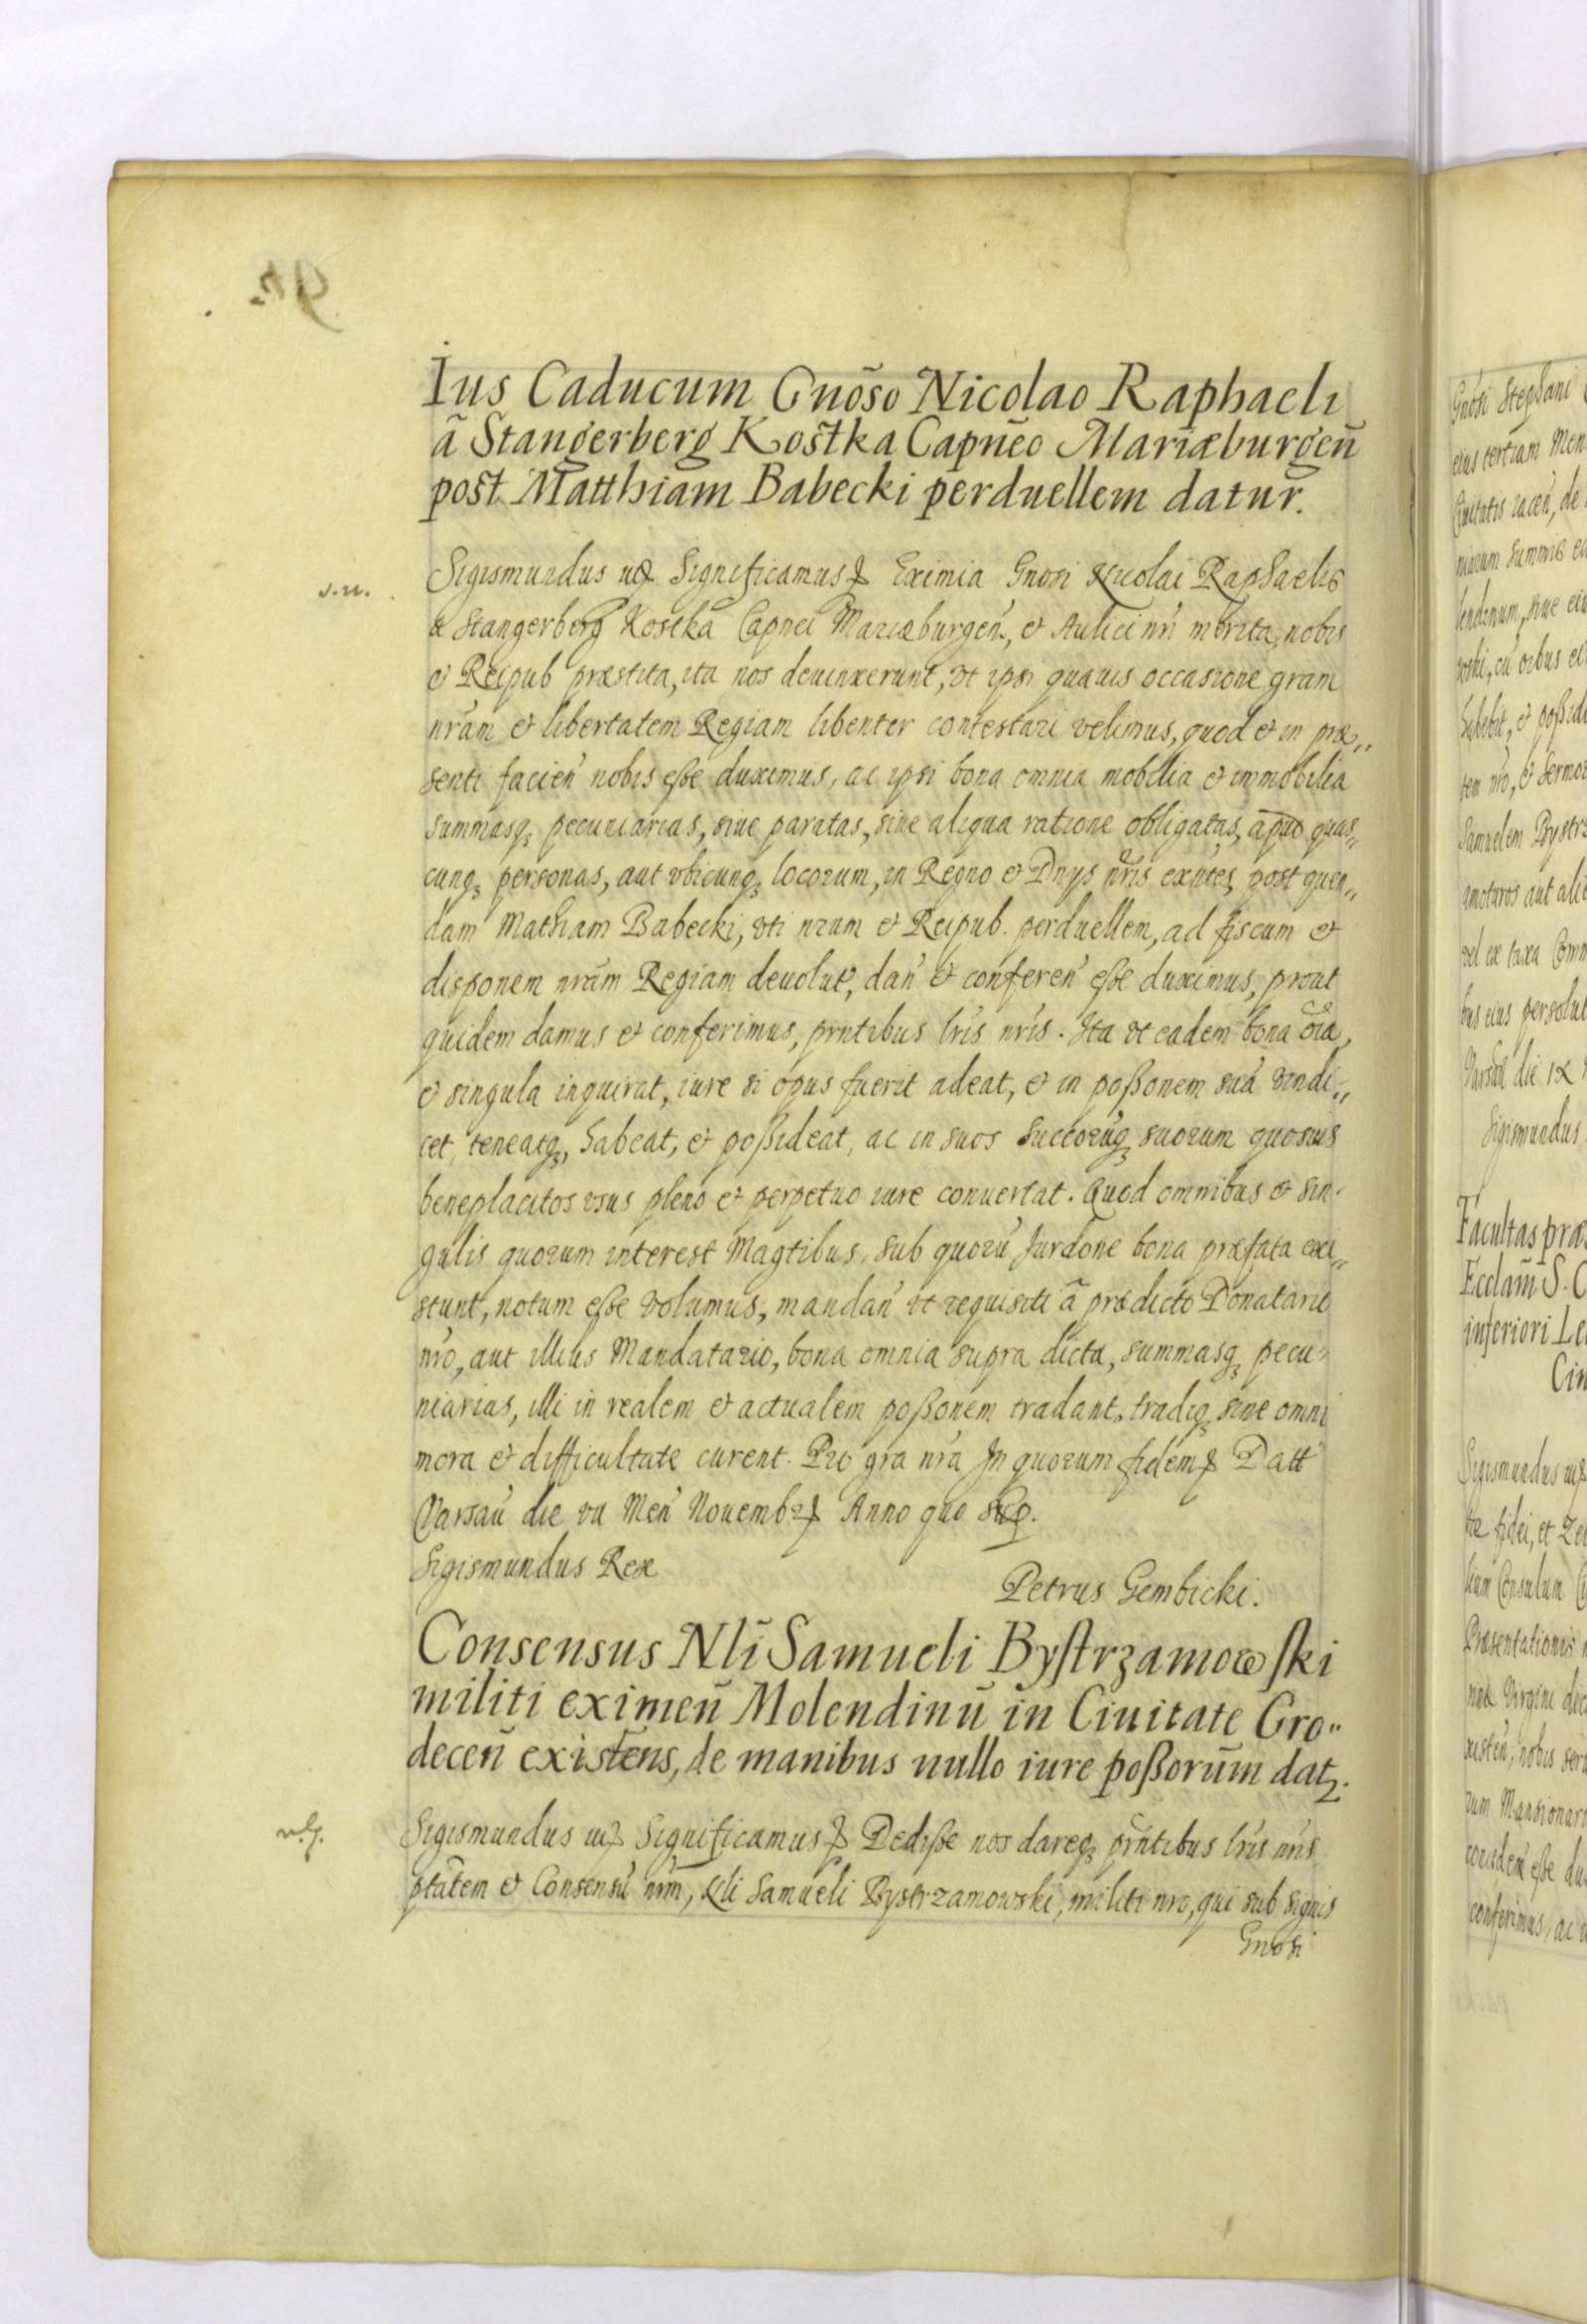 Ius Caducum Gnõso Nicolao Raphaeli
ã Stangerberg Kostka Capnẽo Mariæburgeñ
post Matthiam Babecki perduellem datur.
s.n.
Sigismundus Significamus Eximia Gnosi Nicolai Raphaelis
a Stangerberg Kostka Capnei Mariæburgeñ, et Aulici nri merita, nobis
et Reipub præstita, ita nos deuinxerunt, vt ipsi quauis occasione gram
nram et libertatem Regiam libenter contestari velimus, quod et in præ„
senti facień nobis eße duximus, ac ipsi bona omnia mobilia et immobilia
summasq; pecuniarias, siue paratas, siue aliqua ratione obligatas, apud quas„
cunq; personas, aut vbicunq; locorum, in Regno et Dnys nris exntes, post quen„
dam Mathiam Babecki, vti nrum et Reipub. perduellem, ad fiscum et
disponem nram Regiam deuolut, dań et confereń eße duximus, prout
quidem damus et conferimus, prntibus lris nris. Ita vt eadem bona oia,
et singula inquirat, iure si opus fuerit adeat, et in poßonem suã vindi„
cet, teneatq;, habeat, et poßideat, ac in suos succorũq; suorum quosuis
beneplacitos vsus pleno et perpetuo iure conuertat. Quod omnibus et sin-
gulis quorum interest Magtibus, sub quorũ Jurdone bona præfata exi„
stunt, notum eße volumus, mandań vt requisiti ã prædicto Donatario
nro, aut illius Mandatario, bona omnia supra dicta, summasq; pecu-
niarias, illi in realem et actualem poßonem tradant, tradiq; sine omni
mora et difficultate curent. Pro gra nra In quorum fidem Datt
Varsaũ die vii Meń Nouemb Anno quo
Sigismundus Rex
Petrus Gembicki.
Consensus Nli Samueli Bystrzamowski
militi eximeñ Molendinũ in Ciuitate Gro„
deceñ existens, de manibus nullo iure poßorum dat.
Sigismundus Significamus Dediße nos dareq; prntibus lris nris
ptatem et Consensũ nrm, Nli Samueli Bystrzamowski, militi nro, qui sub signis
Gnosi
Gnosi Stephani
eius tertiam Men
Ciuitatis
Samuelem Bystrz
amoturos aut ali
bus eius persolu
die ix
Sigismundus
Facultas præs
Ecclam S. C
inferiori Le
Sigismundus
fidei, et
Consulum
Præsentationis
Virgini
nobis
Mansionar
eße du
conferimus, ac